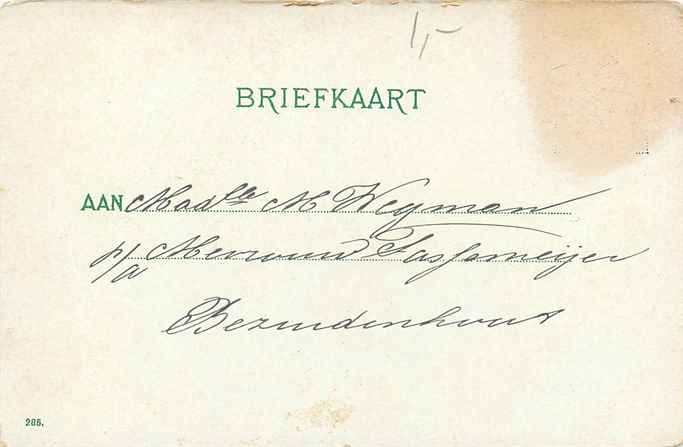 1,-
BRIEFKAART
AAN Madlle M Wegman
p/a Mevrouw Passmeijer
Bezuidenhout
285.